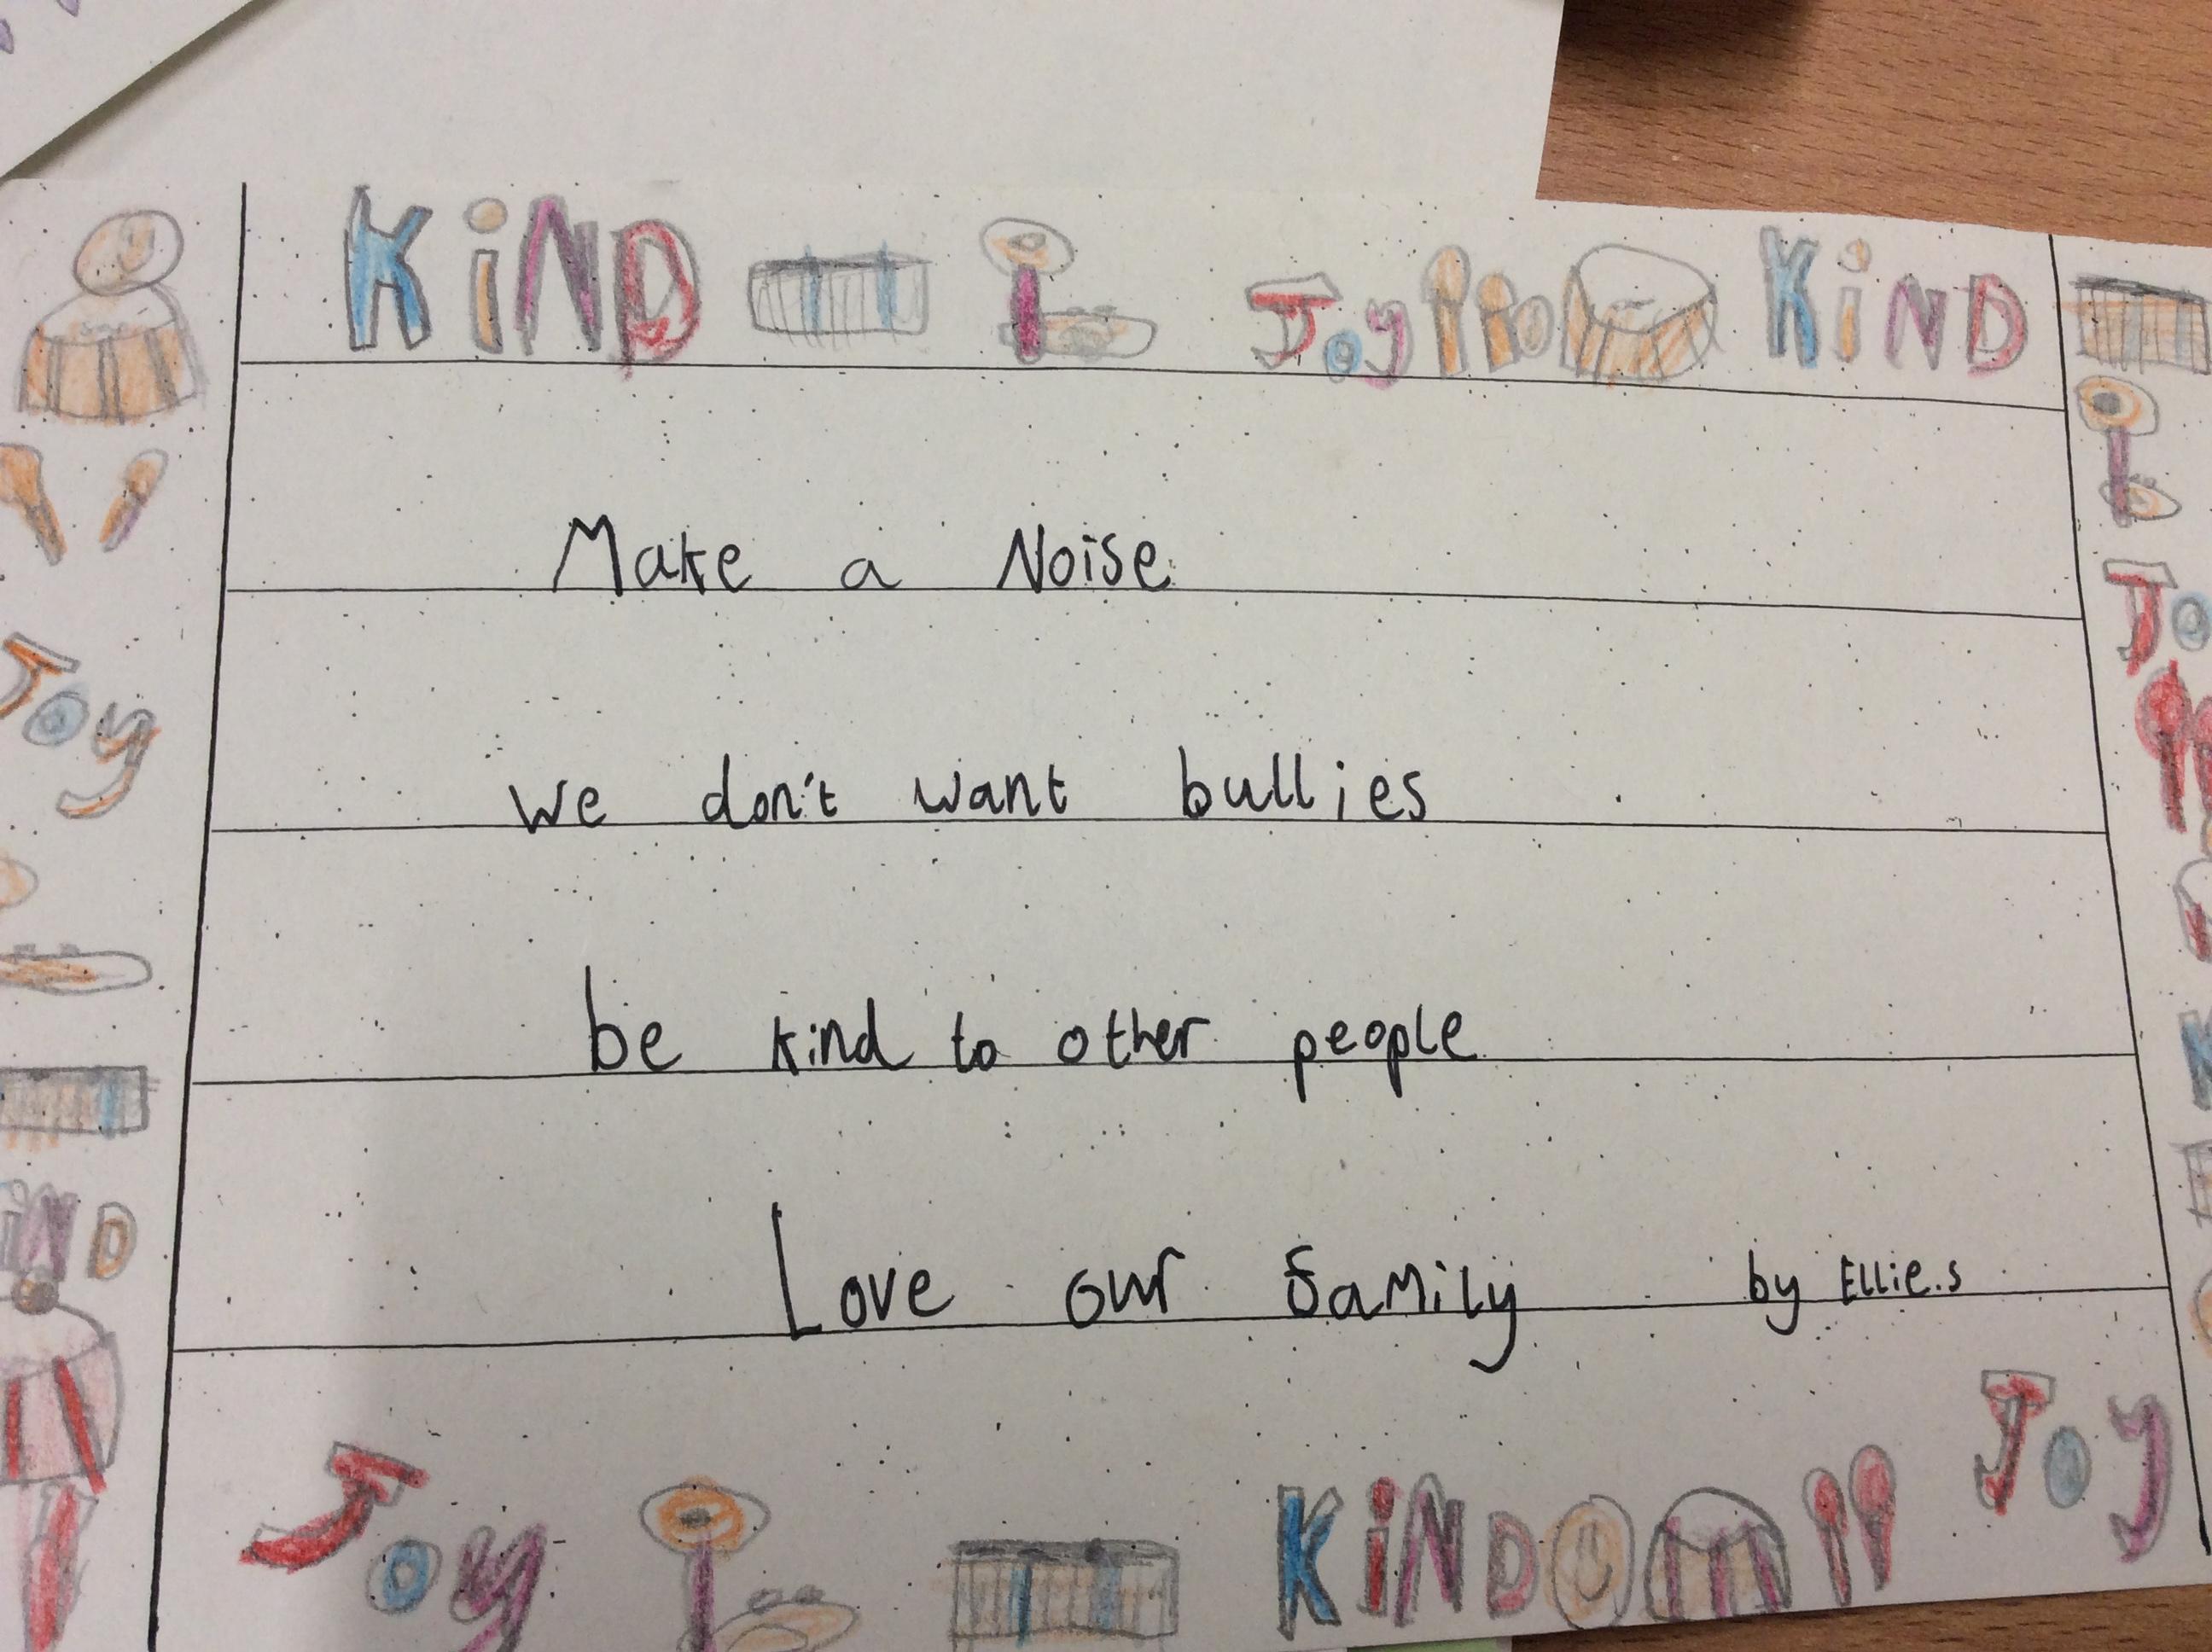 KiND Joy KiND
Make a Noise
we don't want bullies
be kind to other people
Love our family by Ellie.s
Joy KiND Joy
Joy
iND
Jo
K